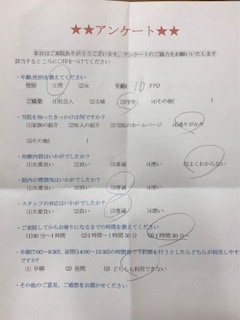 ★★アンケート★★
本日はご来院ありがとうございます。アンケートのご協力をお願いいたします
該当するところに○印をつけてください
・年齢,性別を教えてください
性別 ①男 ②女 年齢( 10 )代
ご職業 (1)社会人 (2)主婦 (3)学生 (4)その他( )
・当院を知ったきっかけは何ですか?
(1)家族の紹介 (2)知人の紹介 (3)当院のホームページ (4)通りがかり
(5)その他( )
・治療内容はいかがでしたか?
(1)大変良い (2)良い (3)普通 (4)悪い (5)よくわからない
・院内の雰囲気はいかがでしたか?
(1)大変良い (2)良い (3)普通 (4)悪い
・スタッフの対応はいかがでしたか?
(1)大変良い (2)良い (3)普通 (4)悪い
・ご来院してからお帰りになるまでの時間を教えてください
(1)30分~1時間 (2)1時間~1時間30分 (3)1時間30分~
ですか?
(1) 早朝 (2) 昼間 (3) どちらも利用できない
・その他のご意見、ご感想をお聞かせください